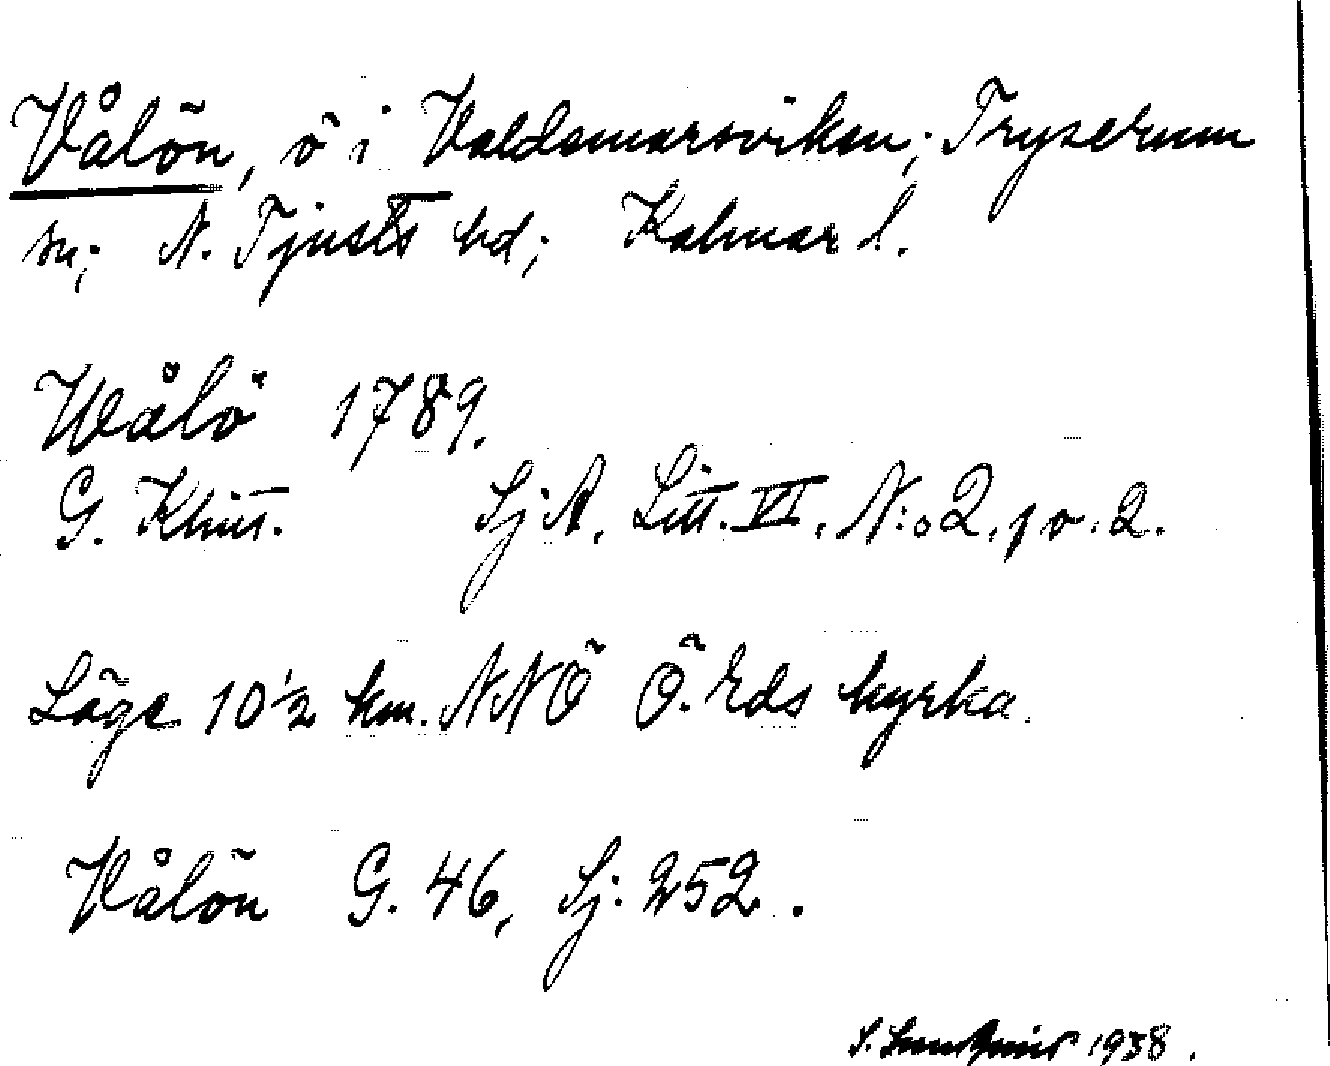 Vålön, ö i Valdemarsviken; Tryserum
sn; N. Tjusts hd; Kalmar l.
Wålö 1789.
G. Klint. SjA, Litt. VI, N:o 2,
Läge 10 1/2 km. NNÖ Ö. Eds kyrka.
Vålön G. 46, Sj. 252.
S. 1938.